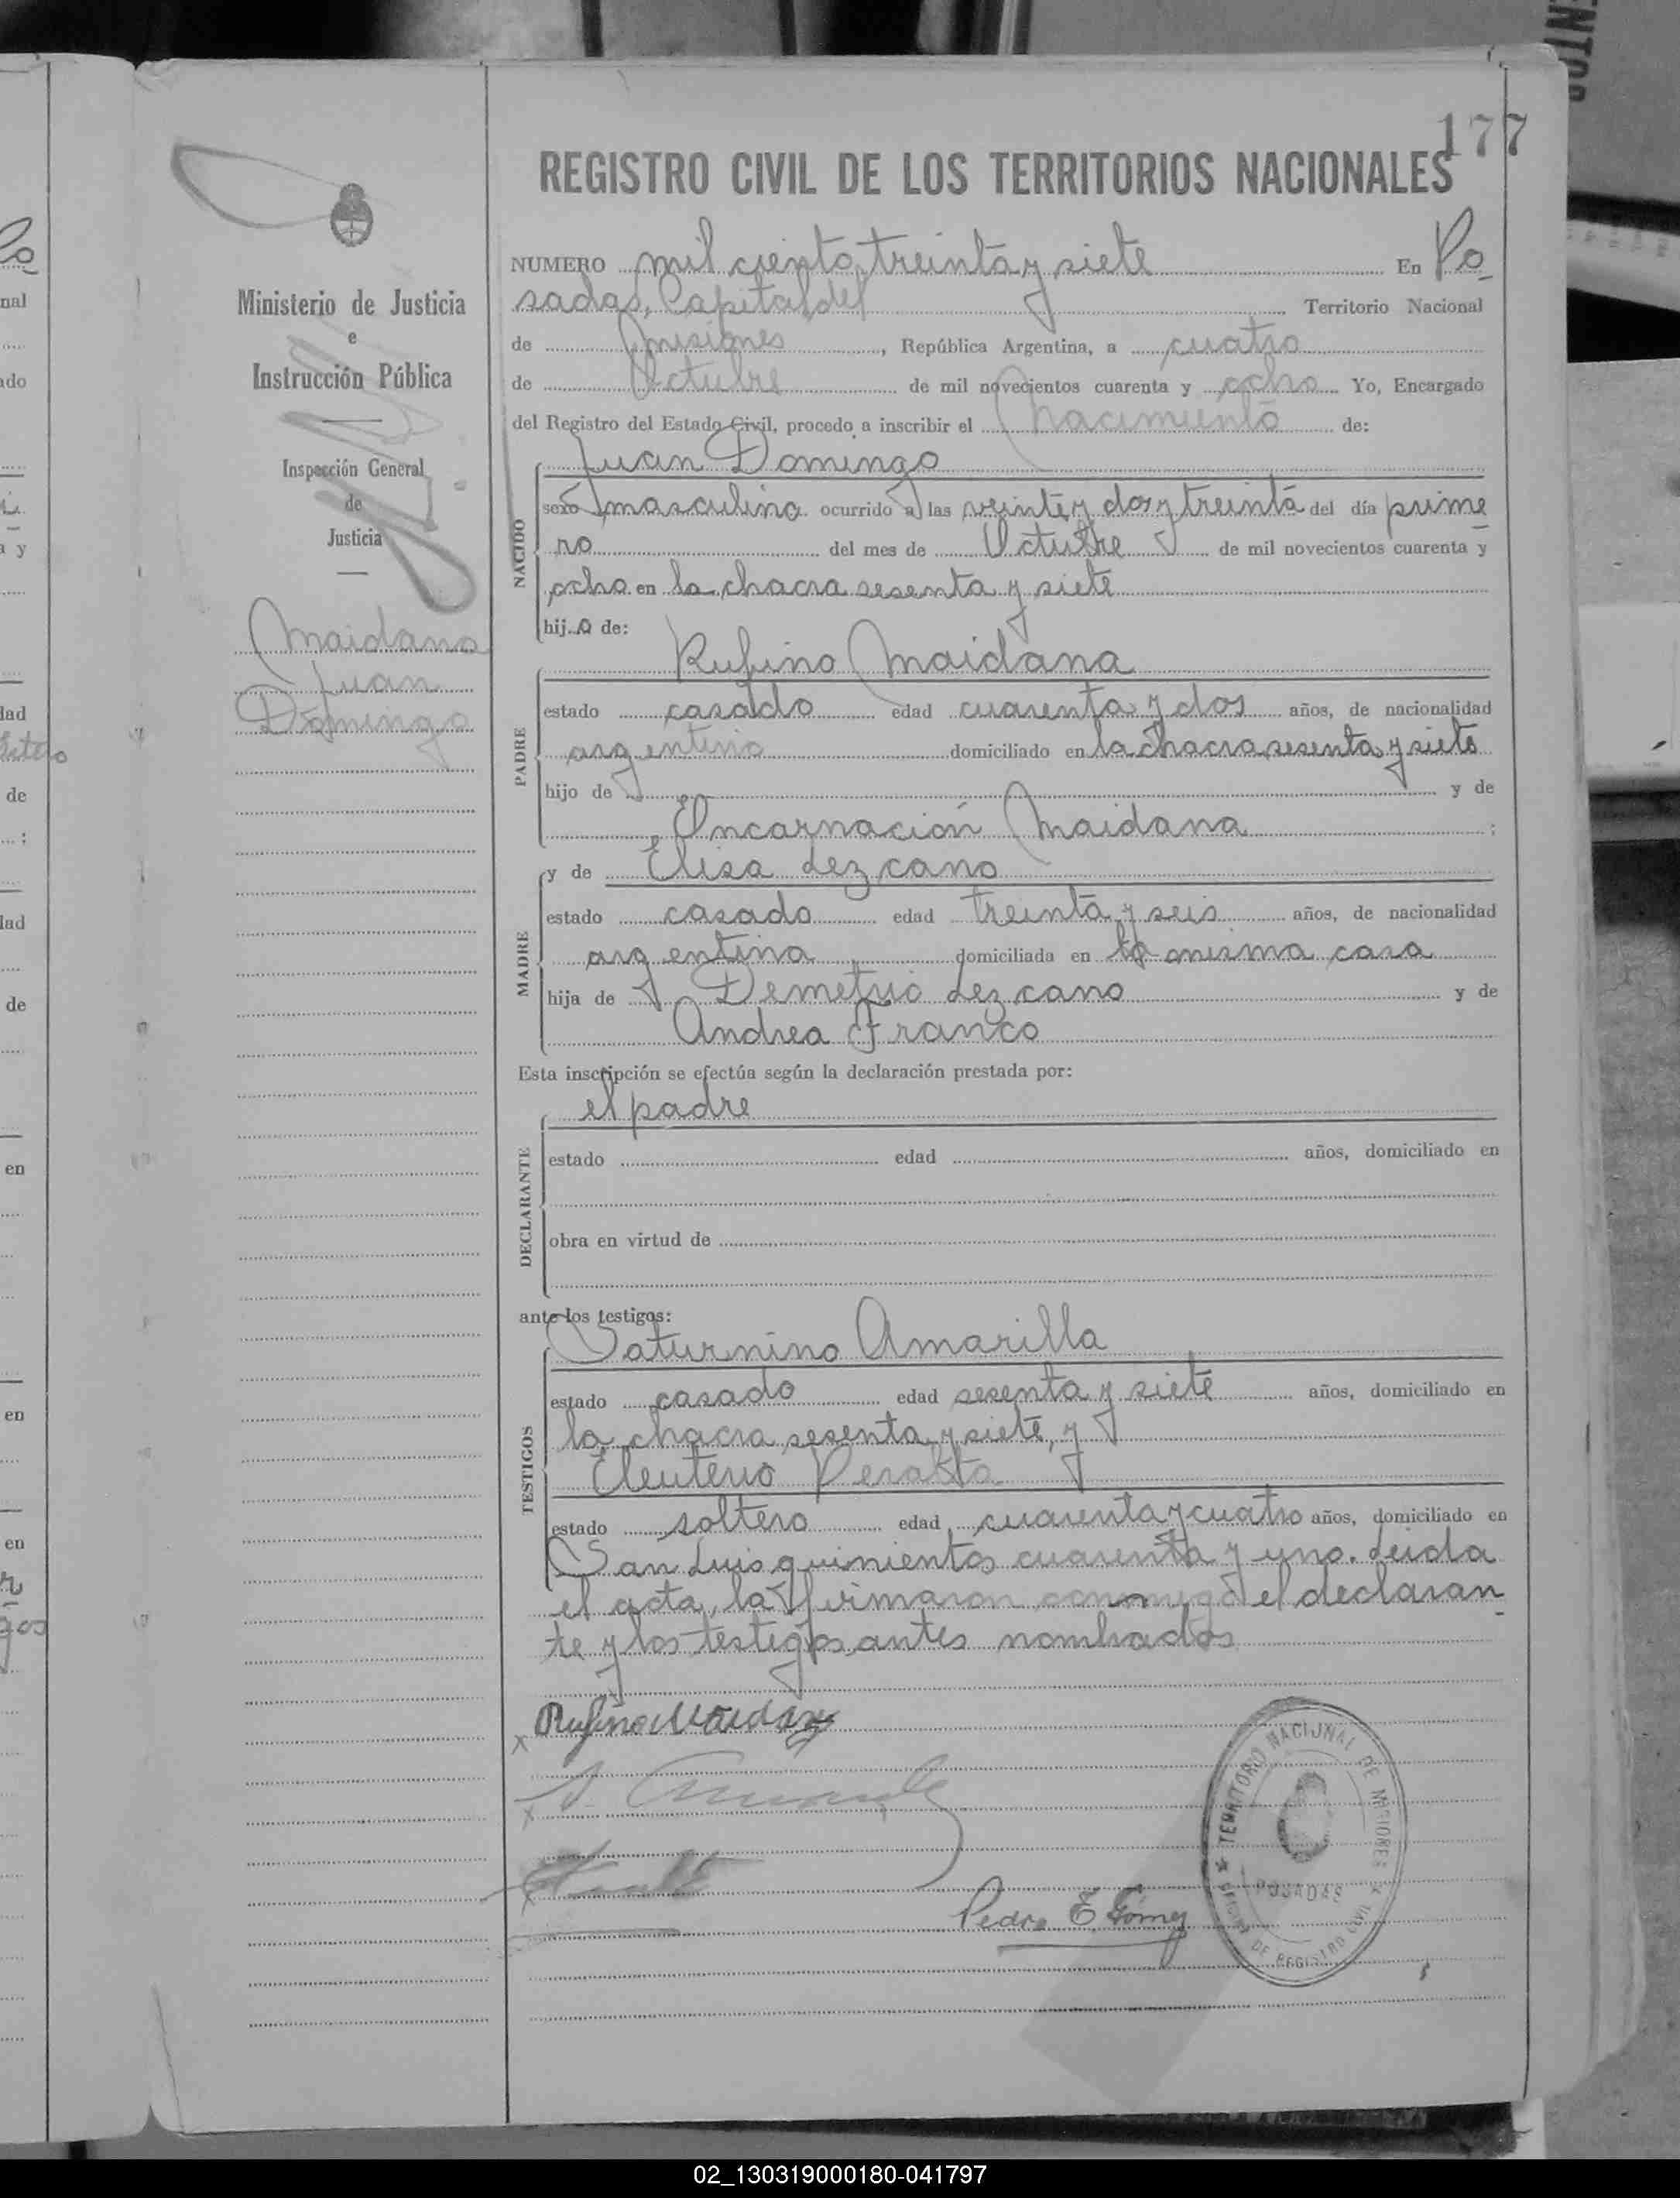 177
REGISTRO CIVIL DE LOS TERRITORIOS NACIONALES
Ministerio de Justicia
e
Instrucción Pública
Inspección General
de
Justicia
Maidana
Juan
Domingo
NUMERO mil ciento treinta y siete En Po
sadas, Capital del Territorio Nacional
de Misiones, República Argentina, a cuatro
de Octubre de mil novecientos cuarenta y ocho Yo, Encargado
del Registro del Estado Civil, procedo a inscribir el Nacimiento de:
NACIDO
Juan Domingo
sexo masculino ocurrido a las veinte y dos y treinta del día prime
ro del mes de Octubre de mil novecientos cuarenta y
ocho en la chacra sesenta y siete
hijo de:
PADRE
Rufino Maidana
estado casado edad cuarenta y dos años, de nacionalidad
argentino domiciliado en la chacra sesenta y siete
hijo de y de
Encarnación Maidana ;
MADRE
y de Elisa Lezcano
estado casado edad treinta y seis años, de nacionalidad
argentina domiciliada en la misma casa
hija de Demetrio Lezcano y de
Andrea Franco
Esta inscripción se efectúa según la declaración prestada por:
DECLARANTE
el padre
estado edad años, domiciliado en
obra en virtud de
ante los testigos:
TESTIGOS
Saturnino Amarilla
estado casado edad sesenta y siete años, domiciliado en
la chacra sesenta y siete, y
Eleuterio Peralta
estado soltero edad cuarenta y cuatro años, domiciliado en
San Luis quinientos cuarenta y uno. Leida
el acta, la firmaron conmigo el declaran
te y los testigos antes nombrados
Rufino Maidana
Pedro E. Gómez
TERRITORIO NACIONAL DE MISIONES
POSADAS
OFICINA DE REGISTRO CIVIL
02_130319000180-041797